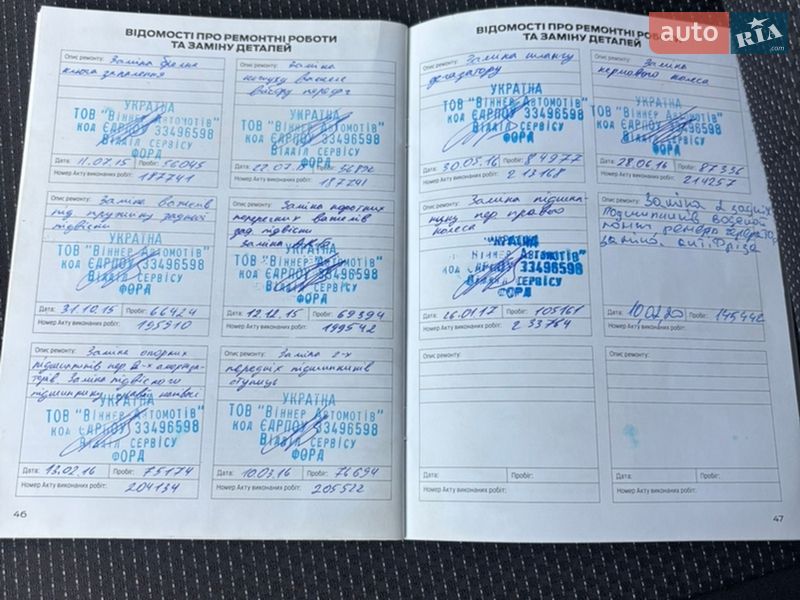 ВІДОМОСТІ ПРО РЕМОНТНІ РОБОТИ
ТА ЗАМІНУ ДЕТАЛЕЙ
Опис ремонту: Заміна
ключа запалення
УКРАЇНА
ТОВ "Віннер Автомотів"
код ЄДРПОУ 33496598
Відділ сервісу
ФОРД
Дата: 11.07.15 Пробіг: 56045
Номер Акту виконаних робіт: 187741
Опис ремонту: Заміна
кожуху важеля
вибору передач
УКРАЇНА
ТОВ "Віннер Автомотів"
код ЄДРПОУ 33496598
Відділ сервісу
ФОРД
Дата: Пробіг:
Номер Акту виконаних робіт: 187741
Опис ремонту: Заміна важелів
під пружину задньої
підвіски
УКРАЇНА
ТОВ "Віннер Автомотів"
код ЄДРПОУ 33496598
Відділ сервісу
ФОРД
Дата: 31.10.15 Пробіг: 66424
Номер Акту виконаних робіт: 195910
Опис ремонту: Заміна коротких
поперечних важелів
зад. підвіски
УКРАЇНА
ТОВ "Віннер Автомотів"
код ЄДРПОУ 33496598
Відділ сервісу
ФОРД
Дата: 12.12.15 Пробіг: 69394
Номер Акту виконаних робіт: 199542
Опис ремонту: Заміна опорних
підшипників пер 2-х амортиза-
торів Заміна підвісного
підшипнику правої
УКРАЇНА
ТОВ "Віннер Автомотів"
код ЄДРПОУ 33496598
Відділ сервісу
ФОРД
Дата: 13.02.16 Пробіг: 75174
Номер Акту виконаних робіт: 204134
Опис ремонту: Заміна 2-х
передніх підшипників
ступиць
УКРАЇНА
ТОВ "Віннер Автомотів"
код ЄДРПОУ 33496598
Відділ сервісу
ФОРД
Дата: 10.03.16 Пробіг: 76694
Номер Акту виконаних робіт: 205522
46
ВІДОМОСТІ ПРО РЕМОНТНІ РОБОТИ
ТА ЗАМІНУ ДЕТАЛЕЙ
Опис ремонту: Заміна шлангу
дегазатору
УКРАЇНА
ТОВ "Віннер Автомотів"
код ЄДРПОУ 33496598
Відділ сервісу
ФОРД
Дата: 30.05.16 Пробіг: 84977
Номер Акту виконаних робіт: 213168
Опис ремонту: Заміна
кермового колеса
УКРАЇНА
ТОВ "Віннер Автомотів"
код ЄДРПОУ 33496598
Відділ сервісу
ФОРД
Дата: 28.06.16 Пробіг: 87336
Номер Акту виконаних робіт: 214257
Опис ремонту: Заміна підшип-
нику пер правого
колеса
УКРАЇНА
ТОВ "Віннер Автомотів"
код ЄДРПОУ 33496598
Відділ сервісу
ФОРД
Дата: 26.01.17 Пробіг: 105161
Номер Акту виконаних робіт: 233754
Опис ремонту: Заміна 2 задніх
Підшипників
заміна
Дата: 10.02.20 Пробіг: 145442
Номер Акту виконаних робіт:
Опис ремонту:
Дата: Пробіг:
Номер Акту виконаних робіт:
Опис ремонту:
Дата: Пробіг:
Номер Акту виконаних робіт:
47
auto RIA.com